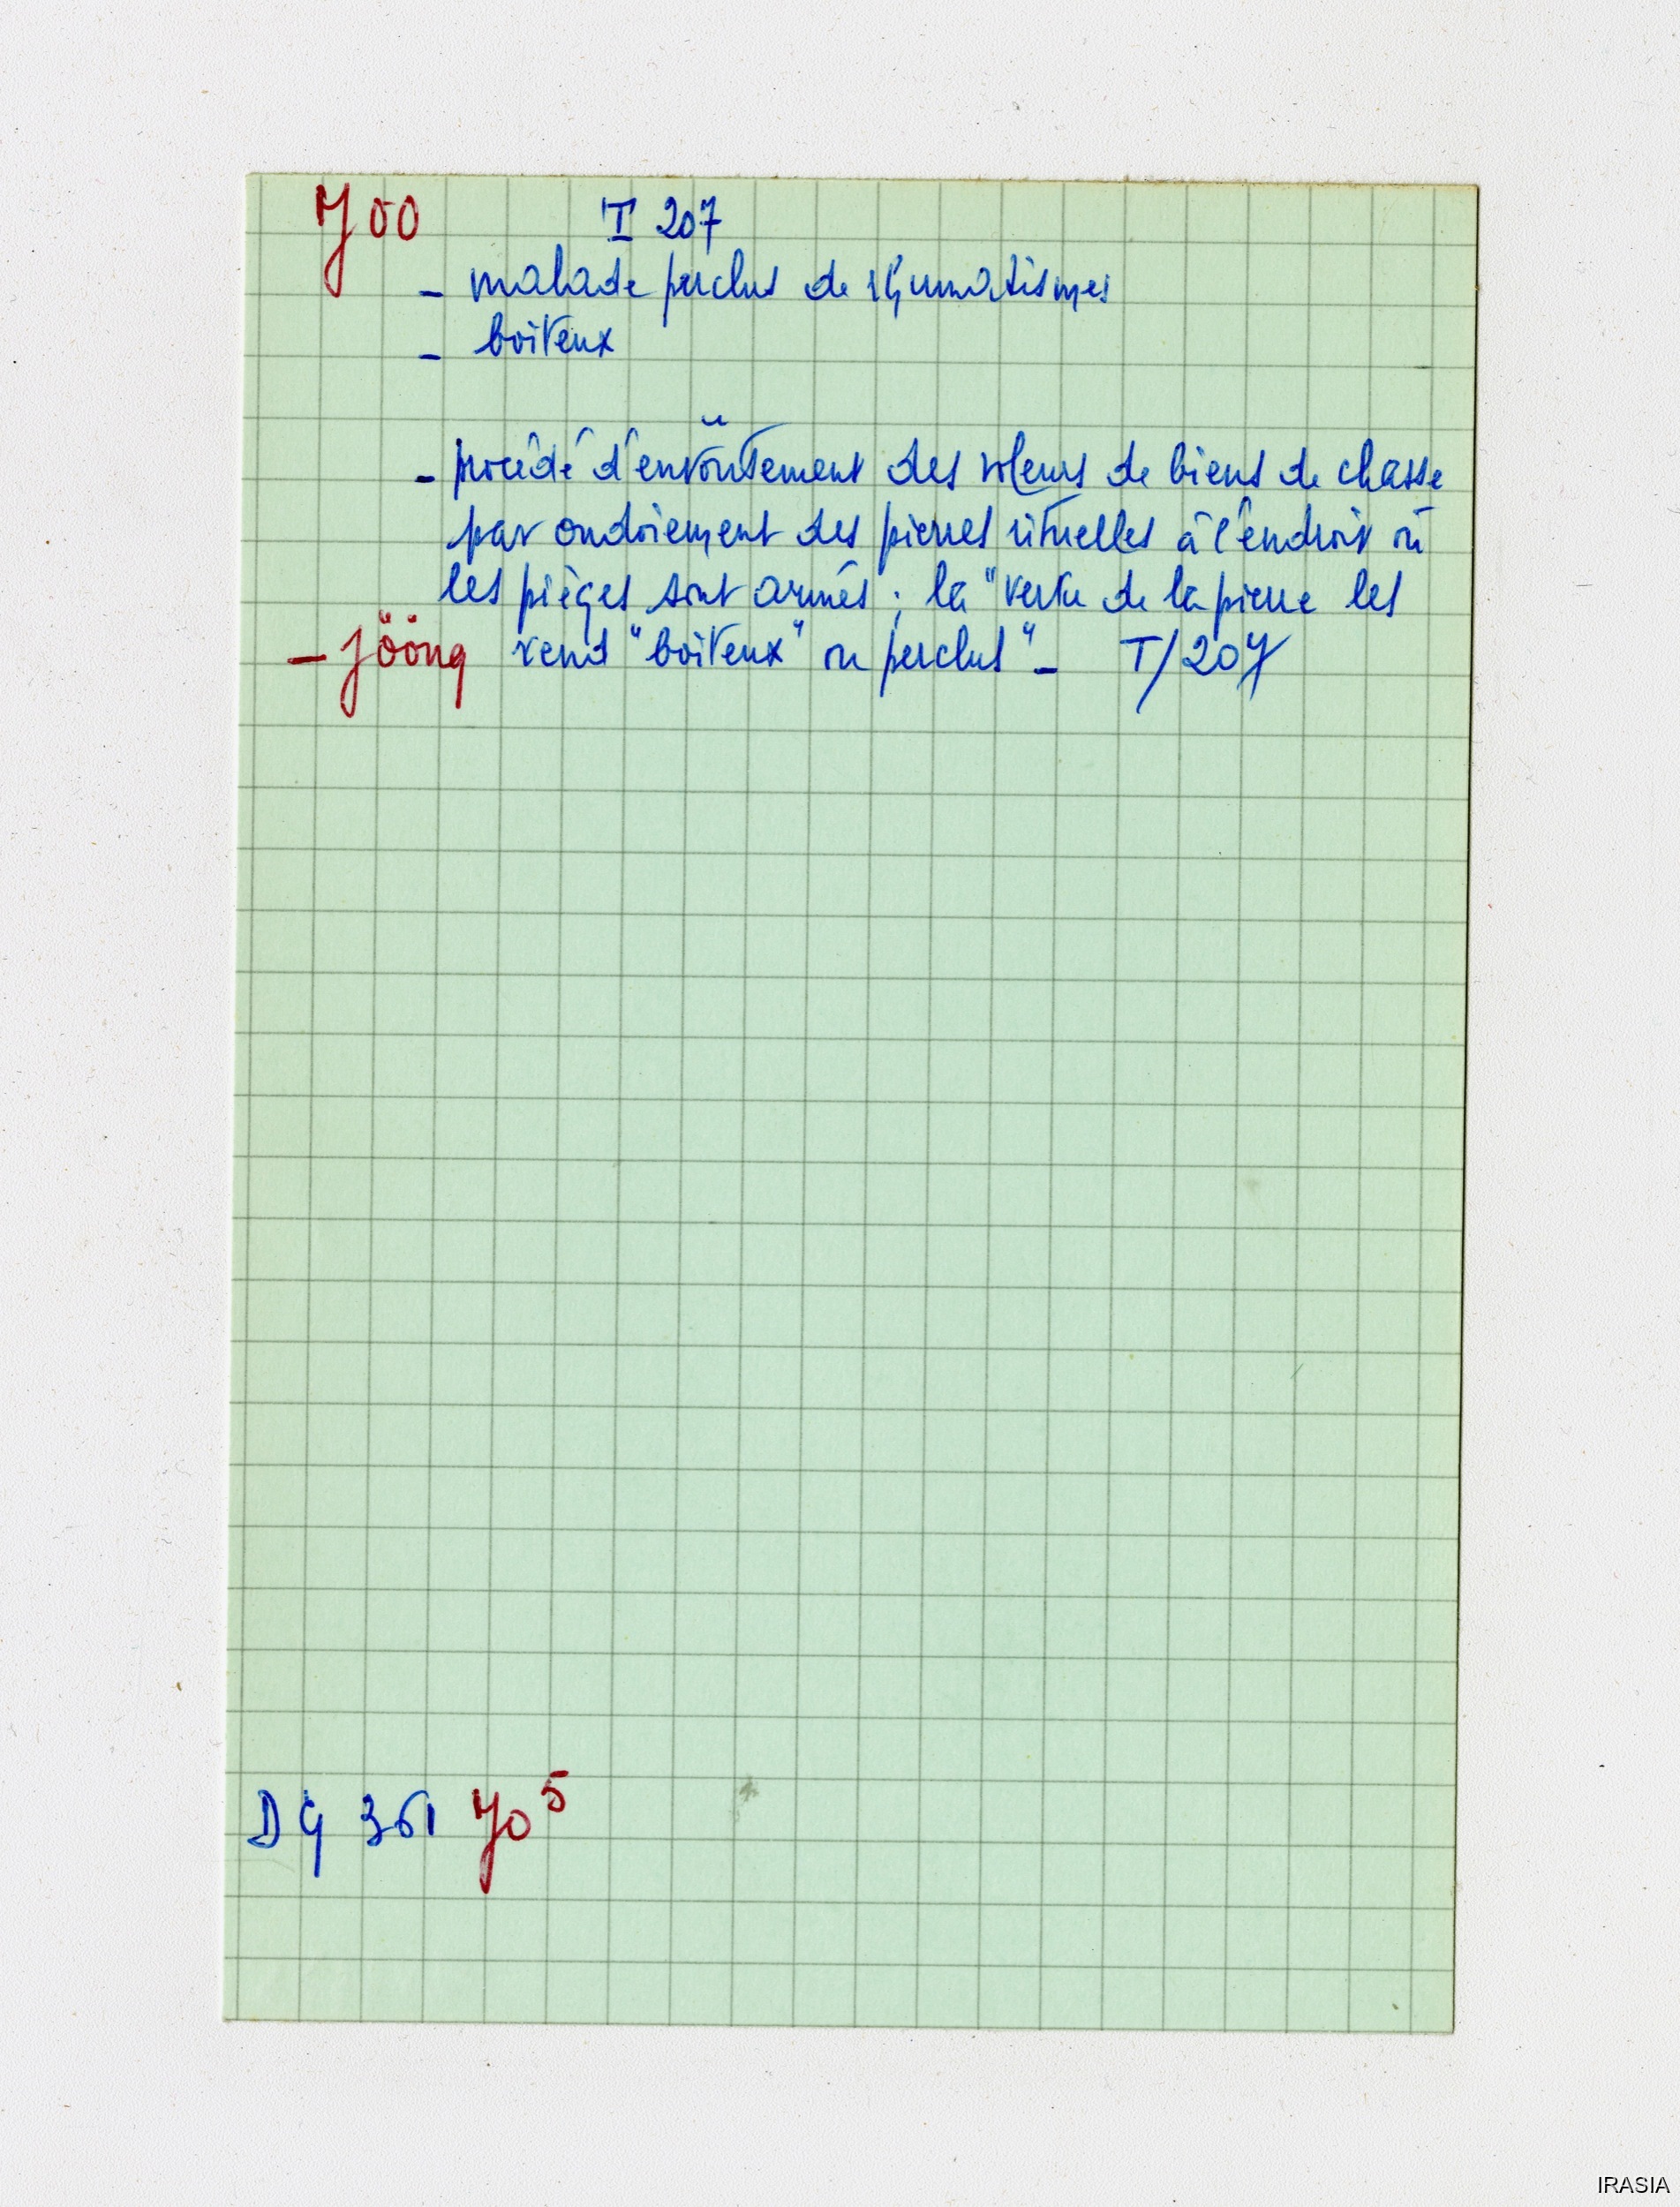 Joo T 207
- malade perclus de rhumatismes
- boiteux
- procédé d'envoûtement des voleurs de biens de chasse
par ondoiement des pierres rituelles à l'endroit où
les pièges sont armés ; la "vertu de la pierre les
- jööng rend "boiteux" ou perclus" - T/207
DG 361 Jo 5
IRASIA